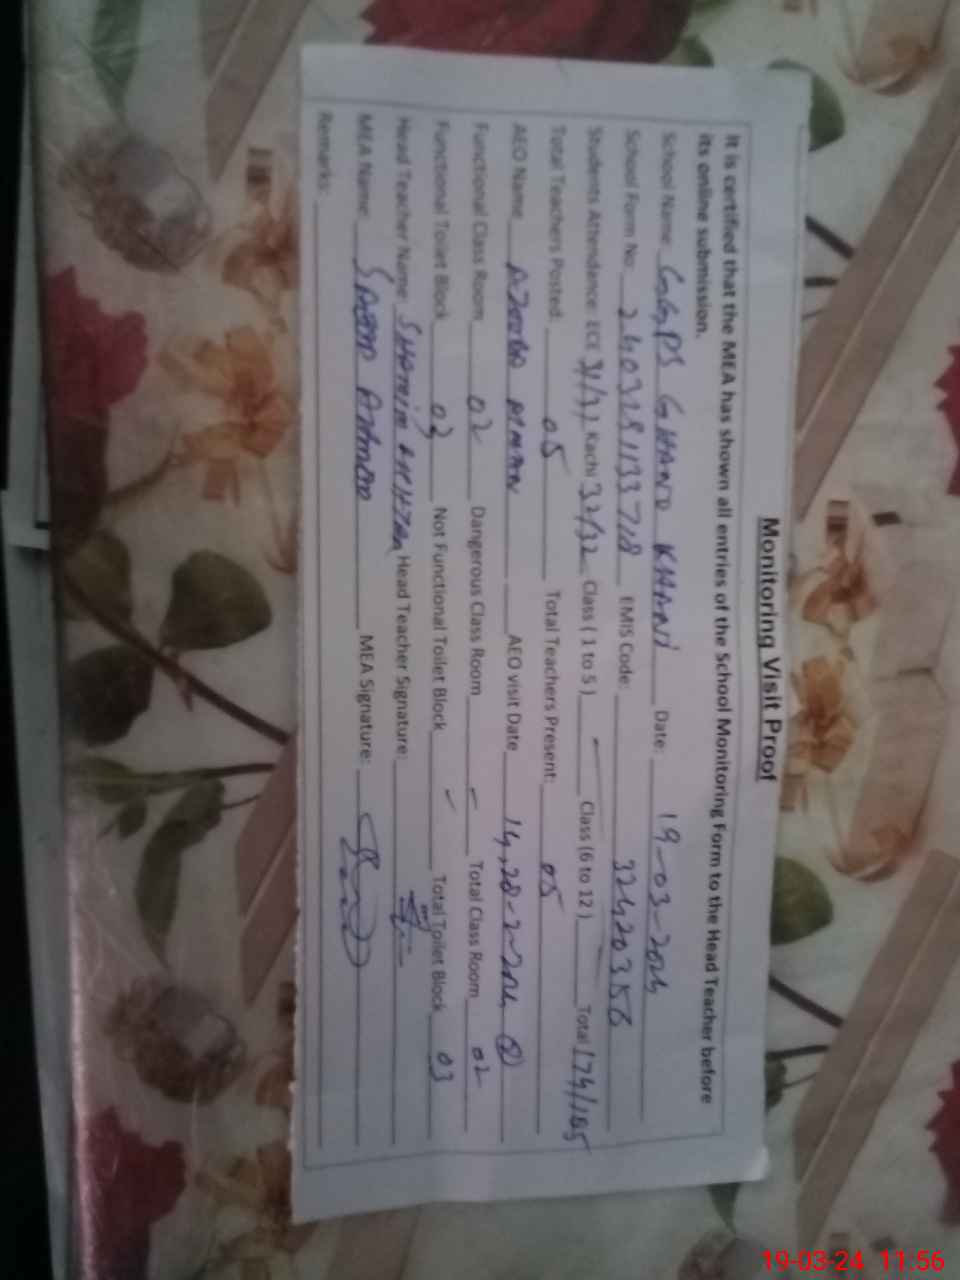 Monitoring Visit Proof
It is certified that the MEA has shown all entries of the School Monitoring Form to the Head Teacher before
its online submission.
School Name GGPS GHANO KHANI Date: 19-03-2024
School Form No: 2403281133718 EMIS Code: 32420356
Students Attendance: ECE 31/31 Kachi 32/32 Class ( 1 to 5 ) - Class (6 to 12 ) Total 174/165
Total Teachers Posted: 05 Total Teachers Present: 05
AEO Name AEO visit Date 14,28-2-2024 (2)
Functional Class Room 02 Dangerous Class Room - Total Class Room 02
Functional Toilet Block 03 Not Functional Toilet Block - Total Toilet Block 03
Head Teacher Name: SHAMIM AKHTAR Head Teacher Signature:
MEA Name: SAEED AHMED MEA Signature:
Remarks:
19-03-24 11:56